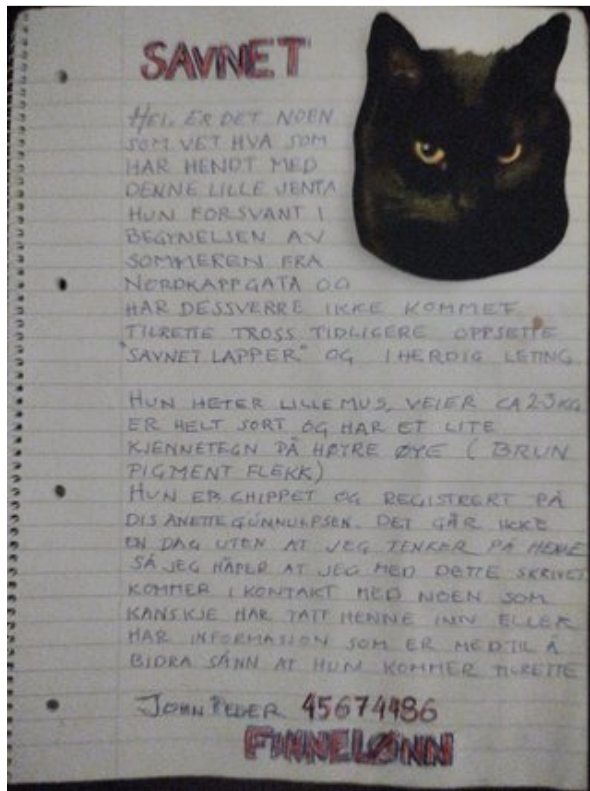 SAVNET
HEI, ER DET NOEN
SOM VET HVA SOM
HAR HENDT MED
DENNE LILLE JENTA
HUN FORSVANT I
BEGYNELSEN AV
SOMMEREN FRA
NORDKAPPGATA OG
HAR DESSVERRE IKKE KOMMET
TILRETTE TROSS TIDLIGERE OPPSETTE
"SAVNET LAPPER" OG IHERDIG LETING
HUN HETER LILLEMUS, VEIER CA 2-3 KG
ER HELT SORT OG HAR ET LITE
KJENNETEGN PÅ HØYRE ØYE (BRUN
PIGMENT FLEKK)
HUN ER CHIPPET OG REGISTRERT PÅ
DIS ANETTE DET GÅR IKKE
EN DAG UTEN AT JEG TENKER PÅ HENNE
SÅ JEG HÅPER AT JEG MED DETTE SKRIVET
KOMMER I KONTAKT MED NOEN SOM
KANSKJE HAR TATT HENNE INN ELLER
HAR INFORMASION SOM ER MED TIL Å
BIDRA SÅNN AT HUN KOMMER TILRETTE
JOHN PEDER 45674486
FINNELØNN